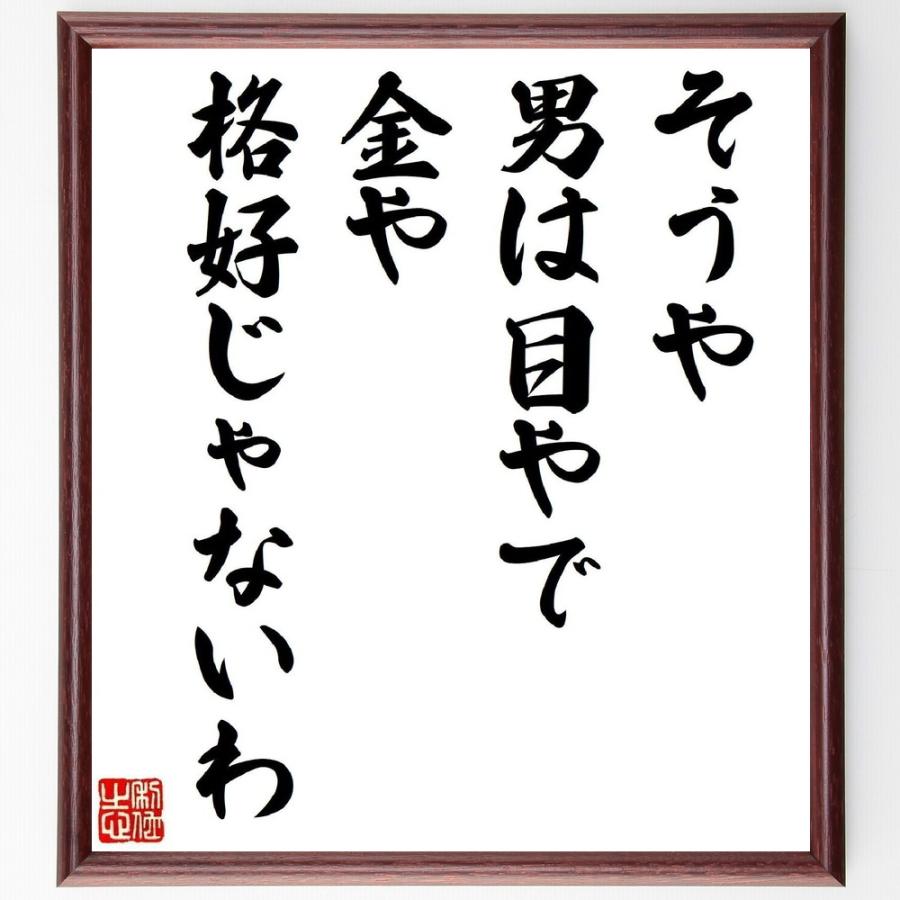 そうや
男は目やで
金や
格好じゃないわ